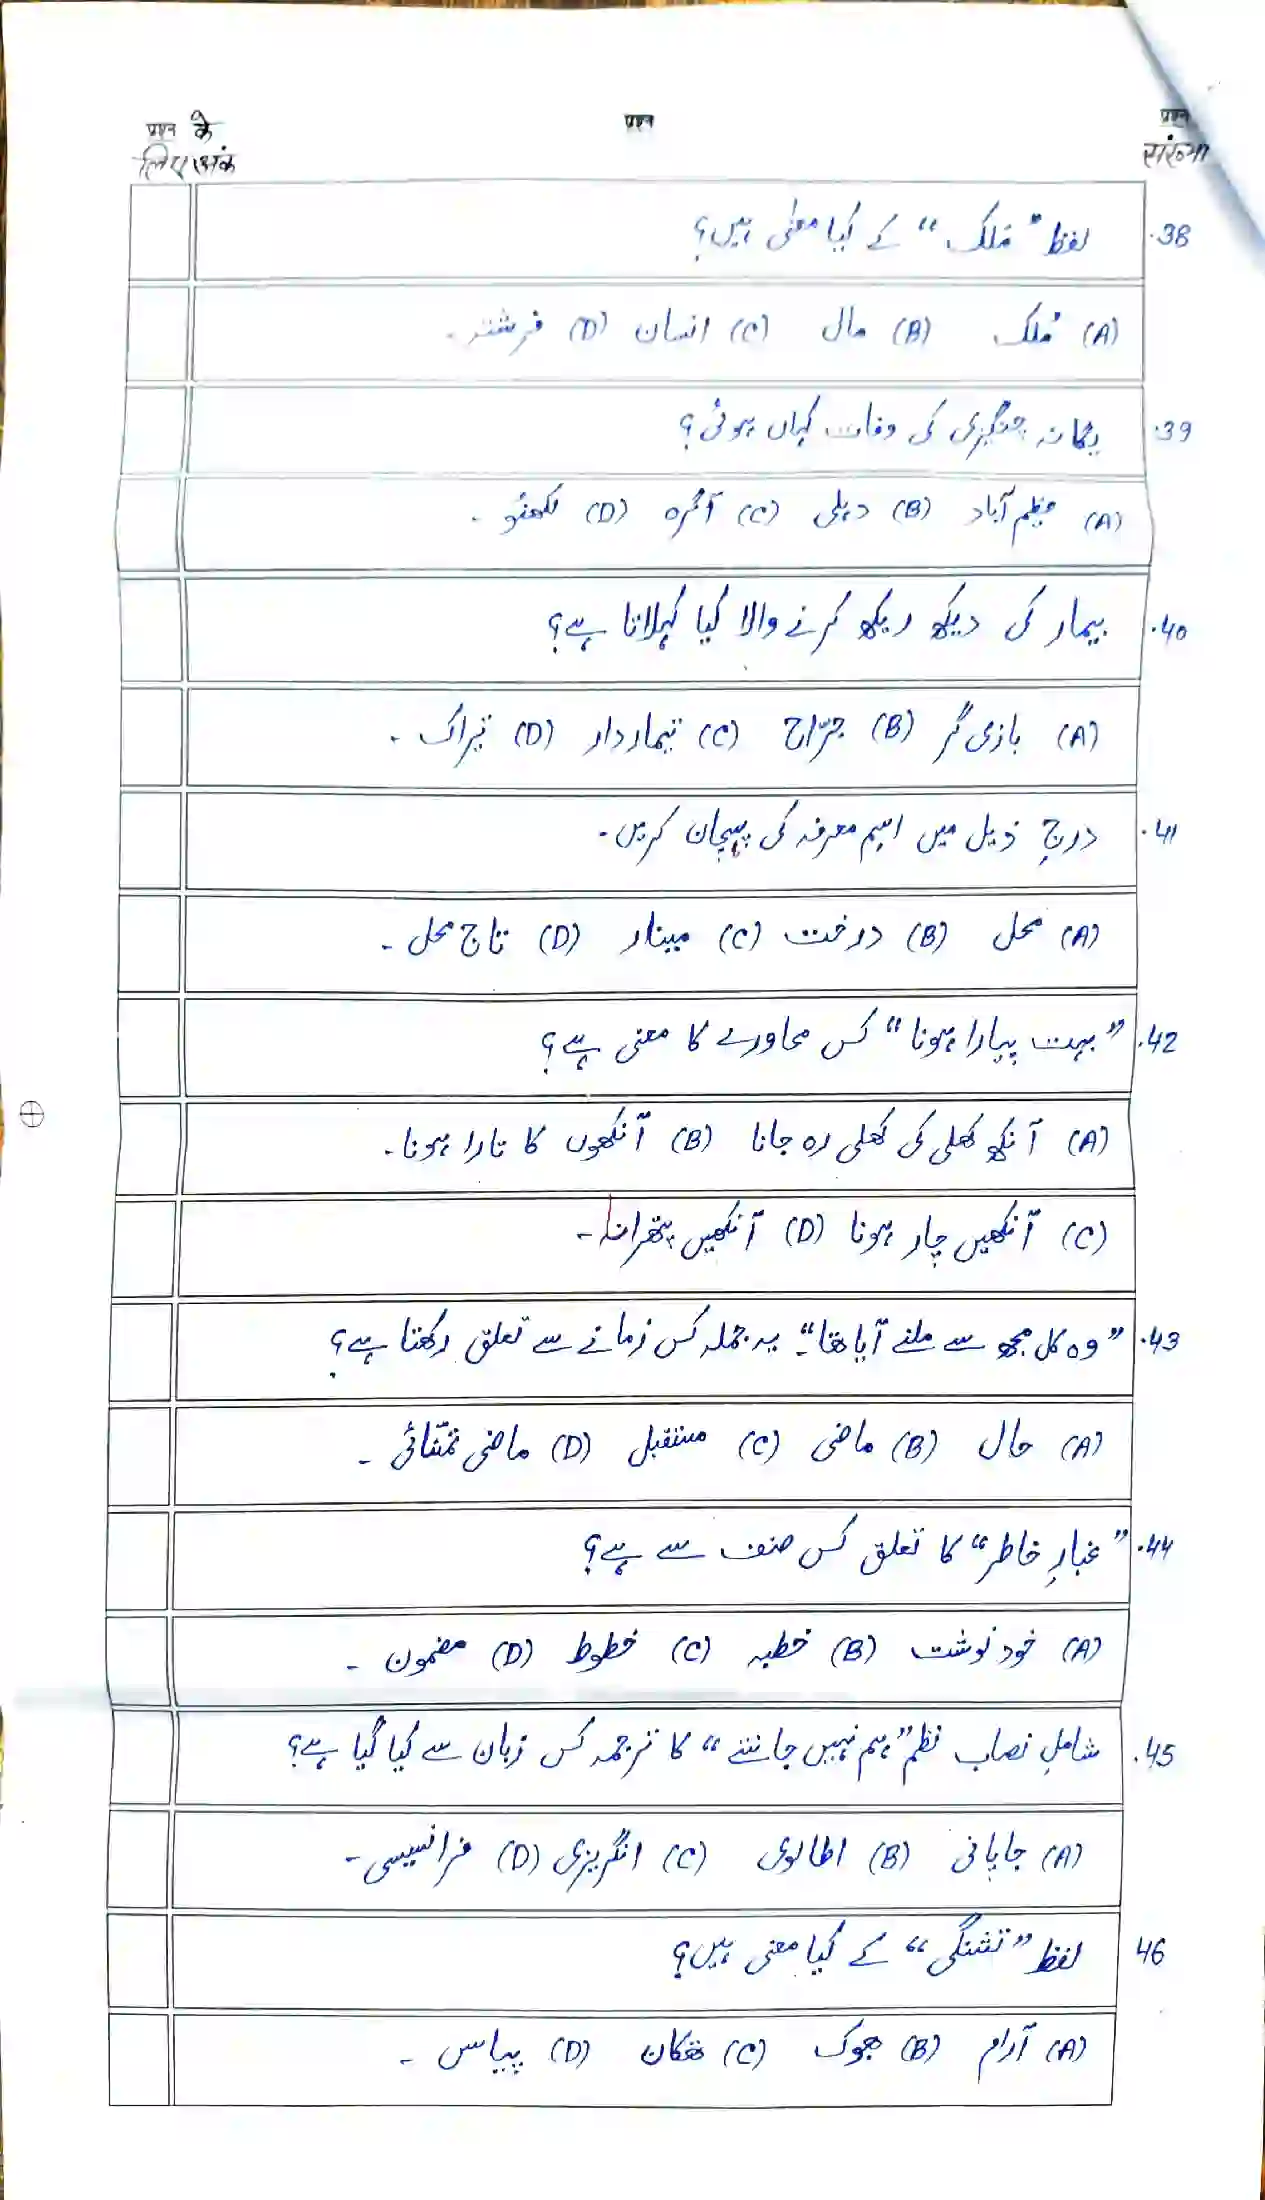 प्रश्न संख्या
प्रश्न
प्रश्न के लिए अंक
38. لفظ ”مَلک“ کے کیا معنی ہیں؟
(A) مُلک (B) مال (C) انسان (D) فرشتہ۔
39. یگانہ چنگیزی کی وفات کہاں ہوئی؟
(A) عظیم آباد (B) دہلی (C) آگرہ (D) لکھنؤ۔
40. بیمار کی دیکھ ریکھ کرنے والا کیا کہلاتا ہے؟
(A) بازی گر (B) جرّاح (C) تیماردار (D) تیراک۔
41. درجِ ذیل میں اسِم معرفہ کی پہچان کریں۔
(A) محل (B) درخت (C) مینار (D) تاج محل۔
42. ”بہت پیارا ہونا“ کس محاورے کا معنی ہے؟
(A) آنکھ کھلی کی کھلی رہ جانا (B) آنکھوں کا تارا ہونا۔
(C) آنکھیں چار ہونا (D) آنکھیں پتھرانا۔
43. ”وہ کل مجھ سے ملنے آیا تھا“۔ یہ جملہ کس زمانے سے تعلق رکھتا ہے؟
(A) حال (B) ماضی (C) مستقبل (D) ماضی تمنّائی۔
44. ”غبارِ خاطر“ کا تعلق کس صنف سے ہے؟
(A) خود نوشت (B) خطبہ (C) خطوط (D) مضمون۔
45. شاملِ نصاب نظم ”ہم نہیں جانتے“ کا ترجمہ کس زبان سے کیا گیا ہے؟
(A) جاپانی (B) اطالوی (C) انگریزی (D) فرانسیسی۔
46 لفظ ”تشنگی“ کے کیا معنی ہیں؟
(A) آرام (B) بھوک (C) تھکان (D) پیاس۔